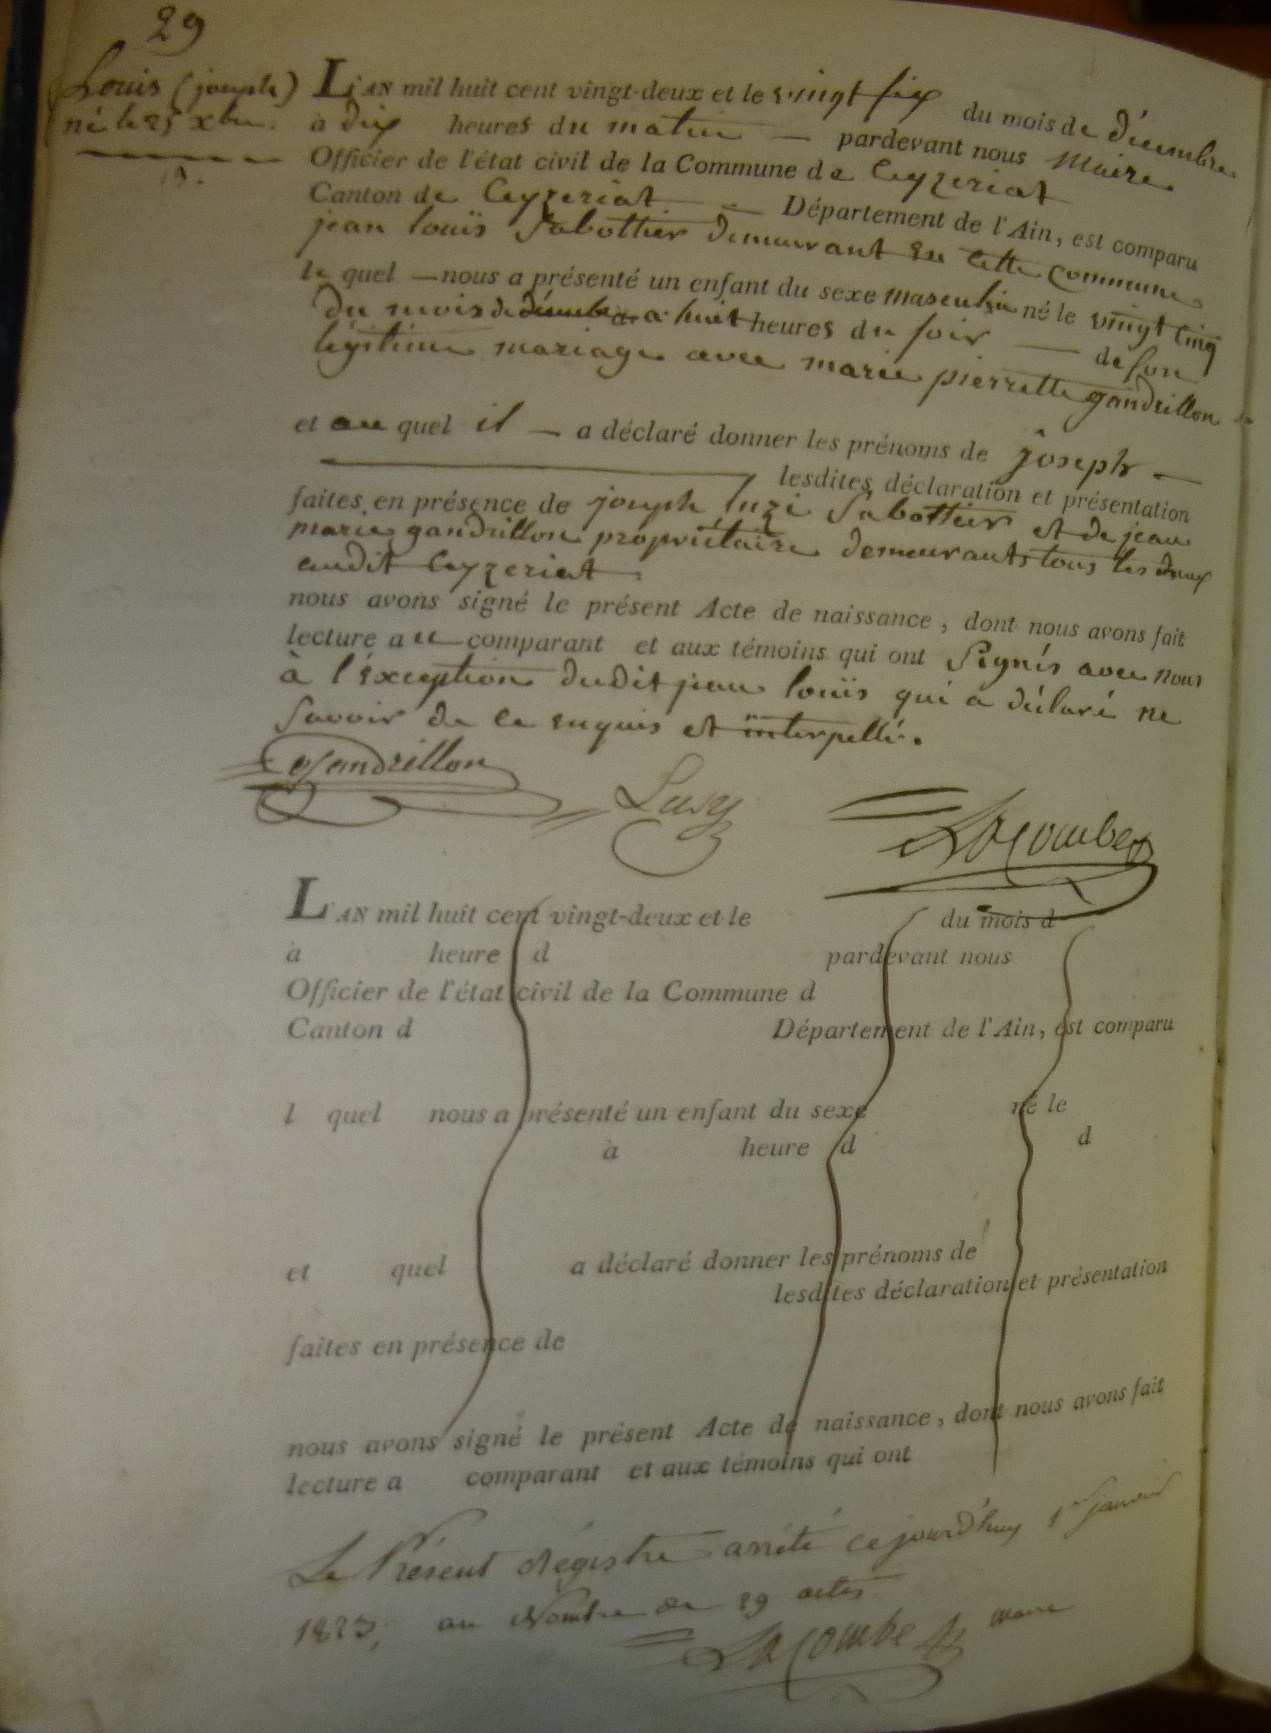 29
Louis (joseph)
né le 25 xbre.
L'AN mil huit cent vingt-deux et le vingt six du mois de décembre
à dix heures du matin — pardevant nous Maire
Officier de l'état civil de la Commune de Ceyzeriat
Canton de Ceyzeriat — Département de l'Ain, est comparu
jean louïs Sabottier demeurant en Cette Commune
le quel — nous a présenté un enfant du sexe masculin né le vingt cinq
du mois de décembre à huit heures du soir — de son
légitime mariage avec marie pierrette gandrillon
et au quel il — a déclaré donner les prénoms de joseph —
lesdites déclaration et présentation
faites en présence de joseph luzi Sabottier et de jean
marie gandrillon propriétaire demeurants tous les deux
audit Ceyzeriat
nous avons signé le présent Acte de naissance, dont nous avons fait
lecture au comparant et aux témoins qui ont Signés avec nous
à l'éxception dudit jean louïs qui a déclaré ne
Savoir de ce enquis et interpellé.
Gandrillon Lusy LACombe
L'AN mil huit cent vingt-deux et le du mois d
à heure d pardevant nous
Officier de l'état civil de la Commune d
Canton d Département de l'Ain, est comparu
l quel nous a présenté un enfant du sexe né le
à heure d d
et quel a déclaré donner les prénoms de
lesdites déclaration et présentation
faites en présence de
nous avons signé le présent Acte de naissance, dont nous avons fait
lecture a comparant et aux témoins qui ont
Le Présent Régistre arrêté ce jourd'huy 1er janvier
1823, au Nombre de 29 actes
LACombe maire